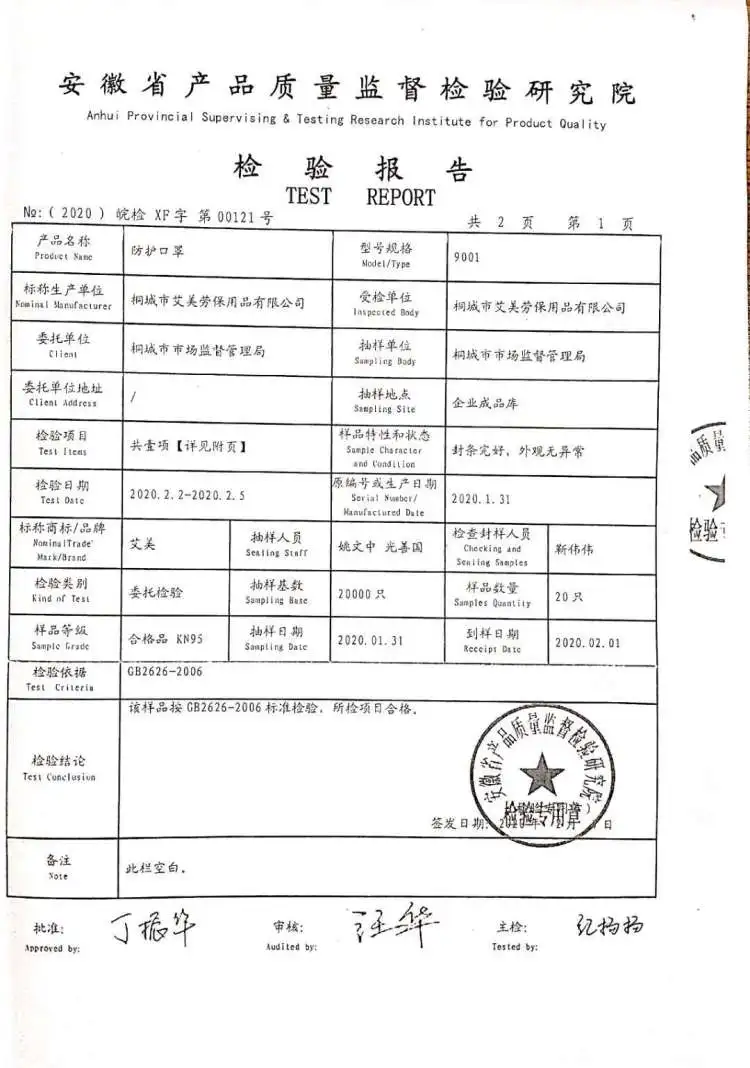 安徽省产品质量监督检验研究院
Anhui Provincial Supervising & Testing Research Institute for Product Quality
检验报告
TEST REPORT
№:(2020) 皖检 XF字 第00121号
共 2 页 第 1 页
产品名称 防护口罩 型号规格 9001
Product Name Model/Type
标称生产单位 桐城市艾美劳保用品有限公司 受检单位 桐城市艾美劳保用品有限公司
Nominal Manufacturer Inspected Body
委托单位 桐城市市场监督管理局 抽样单位 桐城市市场监督管理局
Client Sampling Body
委托单位地址 / 抽样地点 企业成品库
Client Address Sampling Site
检验项目 共壹项【详见附页】 样品特性和状态 封条完好，外观无异常
Test Items Sample Character
and Condition
检验日期 2020.2.2-2020.2.5 原编号或生产日期 2020.1.31
Test Date Serial Number/
Manufactured Date
标称商标/品牌 艾美 抽样人员 姚文中 光善国 检查封样人员 靳伟伟
NominalTrade' Sealing Staff Checking and
Mark/Brand Sealing Samples
检验类别 委托检验 抽样基数 20000只 样品数量 20只
Kind of Test Sampling Base Samples Quantity
样品等级 合格品 KN95 抽样日期 2020.01.31 到样日期 2020.02.01
Sample Grade Sampling Date Receipt Date
检验依据 GB2626-2006
Test Criteria
检验结论 该样品按GB2626-2006标准检验，所检项目合格。
Test Conclusion
安徽省产品质量监督检验研究院
检验专用章
签发日期: 年 月 日
备注 此栏空白。
Note
批准: 丁振华 审核: 汪华 主检: 纪扬扬
Approved by: Audited by: Tested by:
品质量
检验